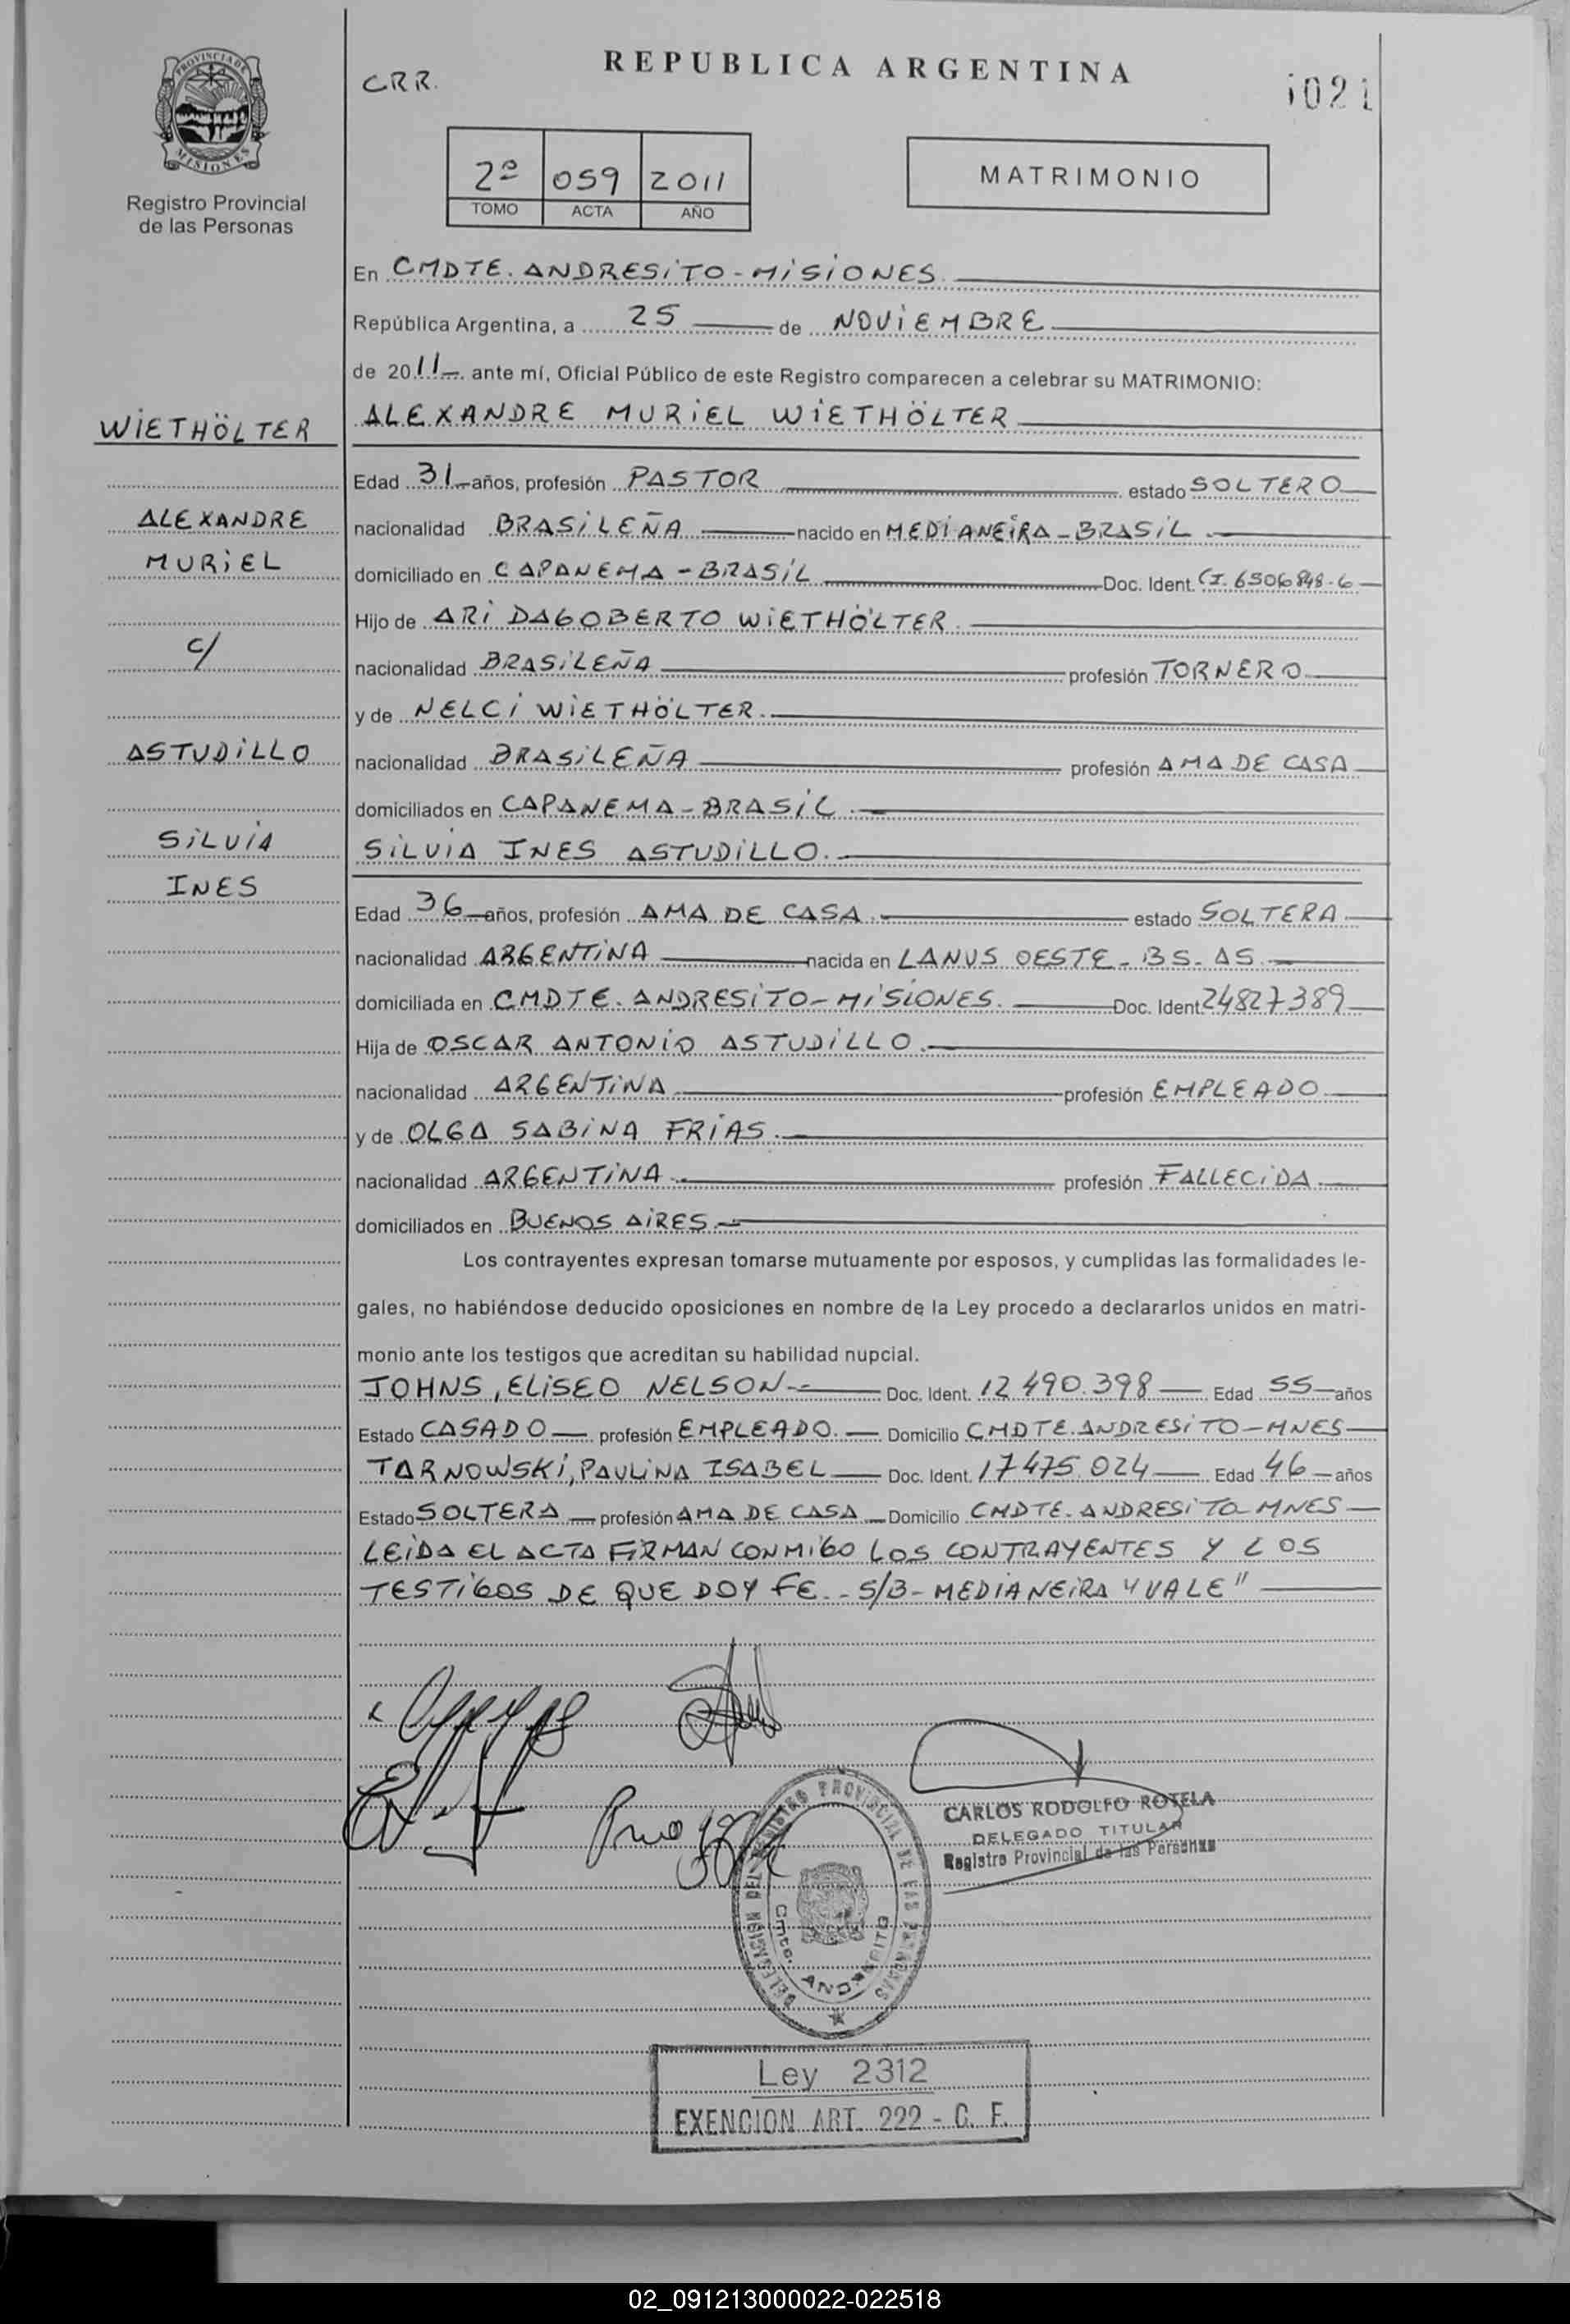 PROVINCIA DE
MISIONES
Registro Provincial
de las Personas
CRR.
REPUBLICA ARGENTINA
1021
2º 059 2011
TOMO ACTA AÑO
MATRIMONIO
En CMDTE. ANDRESiTO - MiSiONES
República Argentina, a 25 de NOViEMBRE
de 2011 ante mí, Oficial Público de este Registro comparecen a celebrar su MATRIMONIO:
WiETHÖLTER
ALEXANDRE MURiEL WiETHÖLTER
Edad 31 años, profesión PASTOR estado SOLTERO
ALEXANDRE
nacionalidad BRASiLEÑA nacido en MEDiANEiRA - BRASiL
MURiEL
domiciliado en CAPANEMA - BRASiL Doc. Ident. CI. 6506848-6
Hijo de ARi DAGOBERTO WiETHÖLTER
c/
nacionalidad BRASiLEÑA profesión TORNERO
y de NELCi WiETHÖLTER
ASTUDiLLO
nacionalidad BRASiLEÑA profesión AMA DE CASA
domiciliados en CAPANEMA - BRASiL
SiLViA
SiLViA INES ASTUDiLLO
INES
Edad 36 años, profesión AMA DE CASA estado SOLTERA
nacionalidad ARGENTiNA nacida en LANUS OESTE - BS. AS.
domiciliada en CMDTE. ANDRESiTO - MiSiONES Doc. Ident. 24827389
Hija de OSCAR ANTONiO ASTUDiLLO
nacionalidad ARGENTiNA profesión EMPLEADO
y de OLGA SABiNA FRiAS
nacionalidad ARGENTiNA profesión FALLECiDA
domiciliados en BUENOS AiRES
Los contrayentes expresan tomarse mutuamente por esposos, y cumplidas las formalidades le-
gales, no habiéndose deducido oposiciones en nombre de la Ley procedo a declararlos unidos en matri-
monio ante los testigos que acreditan su habilidad nupcial.
JOHNS, ELiSEO NELSON Doc. Ident. 12.490.398 Edad 55 años
Estado CASADO profesión EMPLEADO Domicilio CMDTE. ANDRESiTO - MNES
TARNOWSKi, PAULiNA ISABEL Doc. Ident. 17.475.024 Edad 46 años
Estado SOLTERA profesión AMA DE CASA Domicilio CMDTE. ANDRESiTO - MNES
LEiDA EL ACTA FiRMAN CONMiGO LOS CONTRAYENTES Y LOS
TESTiGOS DE QUE DOY FE. - S/B - MEDiANEiRA "VALE"
CARLOS RODOLFO ROTELA
DELEGADO TITULAR
Registro Provincial de las Personas
DELEGACION DEL REGISTRO PROVINCIAL DE LAS PERSONAS
Cmte. ANDRESITO
Ley 2312
EXENCION ART. 222 - C. F.
02_091213000022-022518